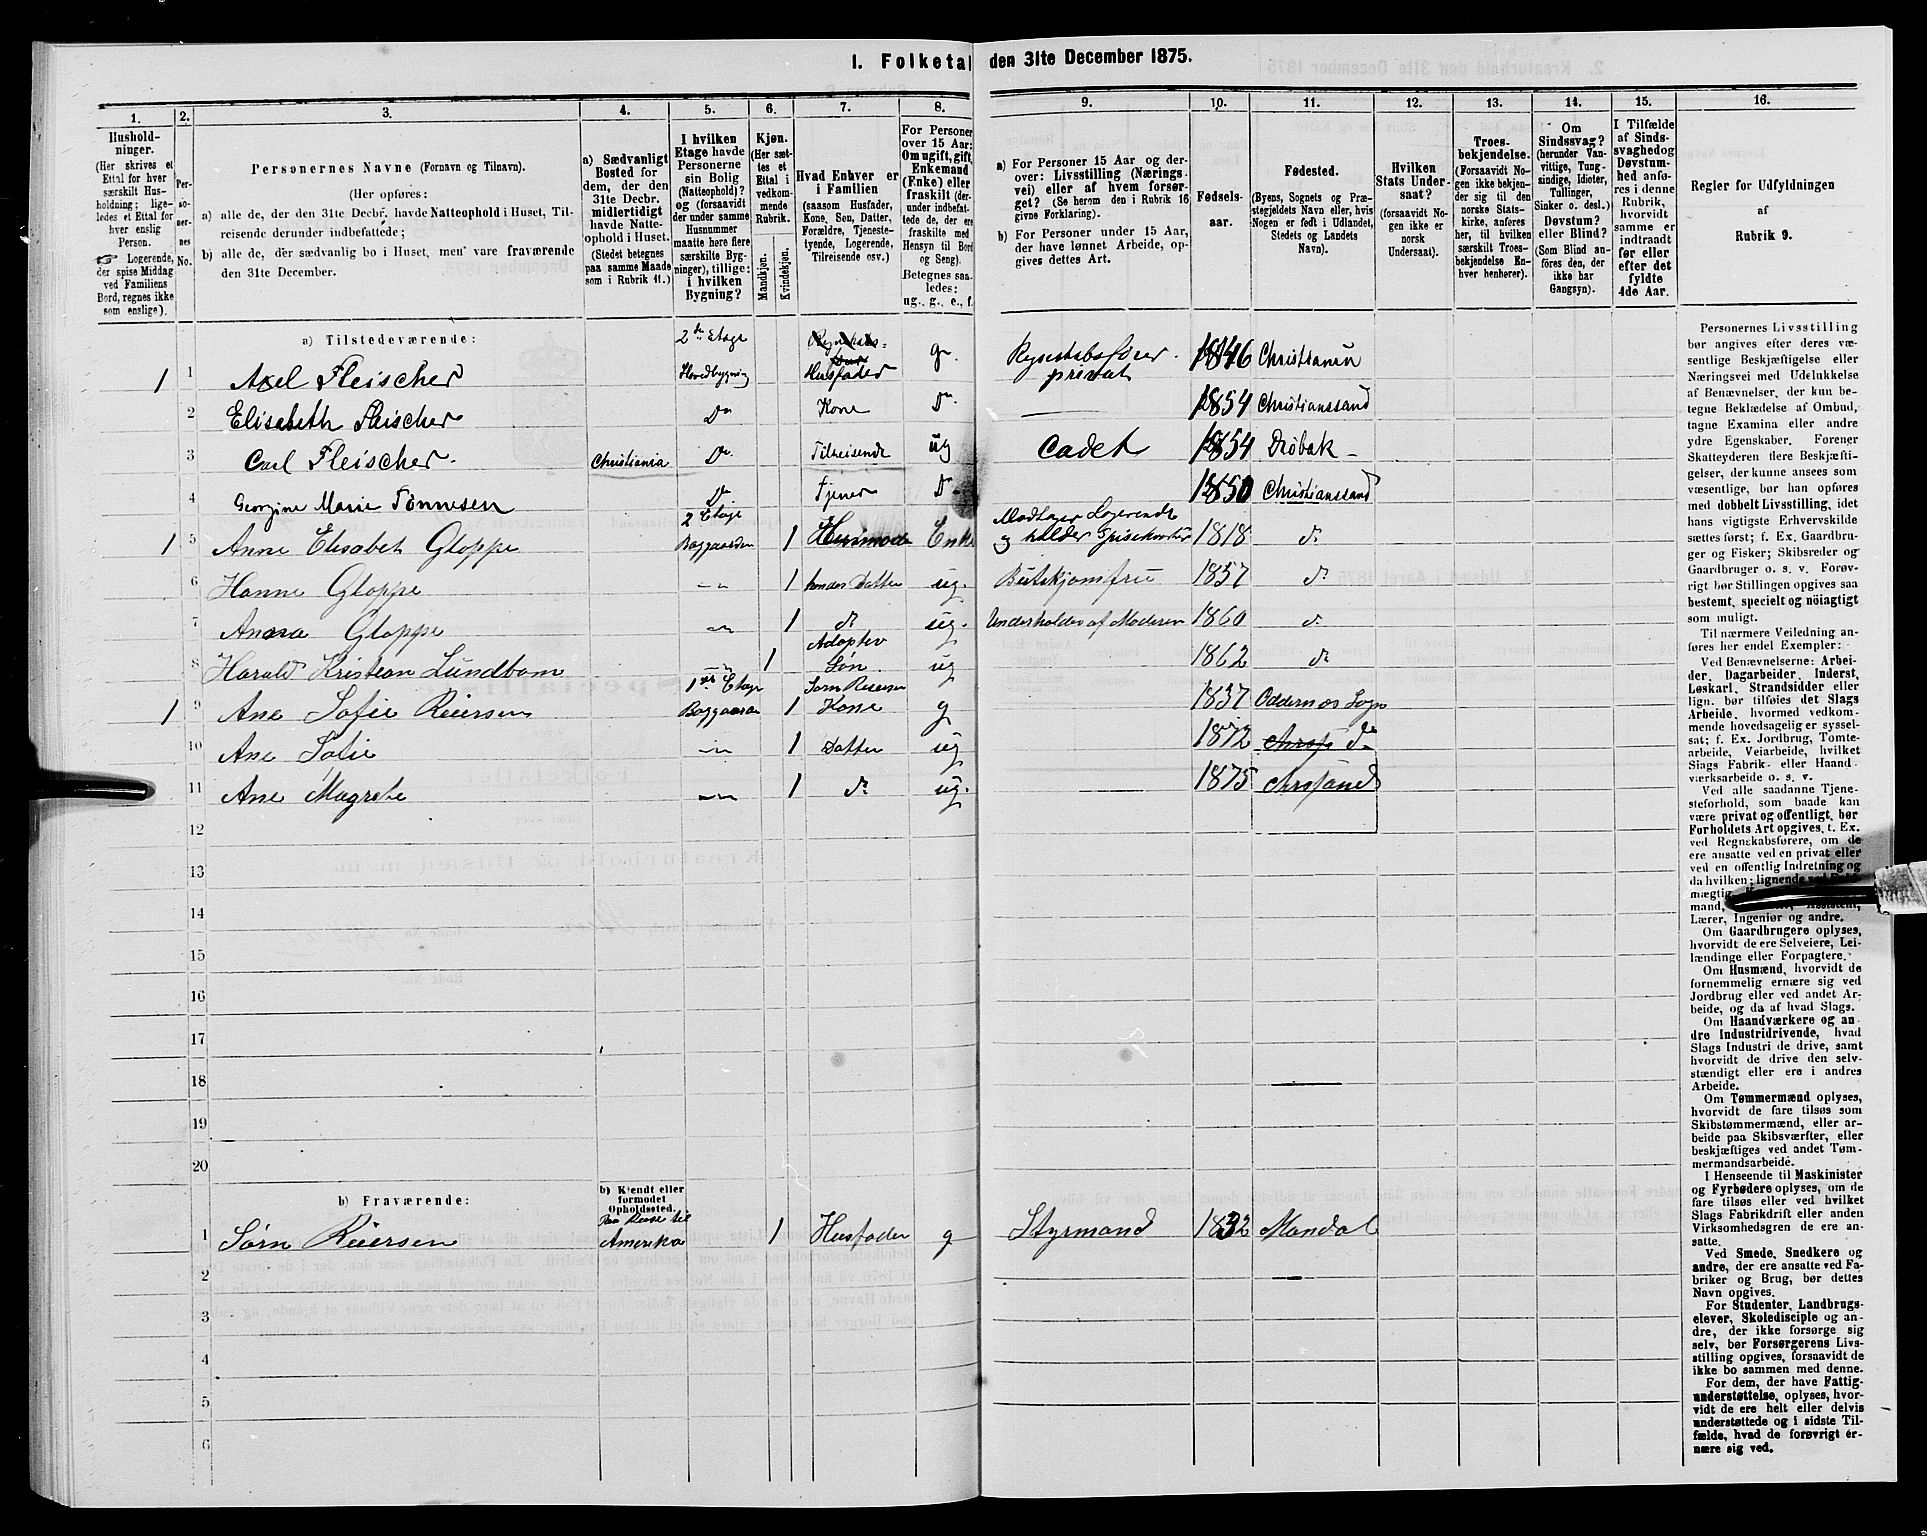 I. Folketal den 31te December 1875.
1. 2. 3. 4. 5. 6. 7. 8. 9. 10. 11. 12. 13. 14. 15. 16.
Hushold-
ninger.
(Her skrives et
Ettal for hver
særskilt Hus-
holdning; lige-
ledes et Ettal for
hver enslig
Person.
☞ Logerende,
der spise Middag
ved Familiens
Bord, regnes ikke
som enslige).
Per-
soner-
nes
No.
Personernes Navne (Fornavn og Tilnavn).
(Her opføres:
a) alle de, der den 31te Decbr. havde Natteophold i Huset, Til-
reisende derunder indbefattede;
b) alle de, der sædvanlig bo i Huset, men vare fraværende
den 31te December.
a) Sædvanligt
Bosted for
dem, der den
31te Decbr.
midlertidigt
havde Natte-
ophold i Huset.
(Stedet betegnes
paa samme Maade
som i Rubrik 11.)
I hvilken
Etage havde
Personerne
sin Bolig
(Natteophold)?
og (forsaavidt
der under samme
Husnummer
maatte høre flere
særskilte Byg-
ninger), tillige:
i hvilken
Bygning?
Kjøn.
(Her sæt-
tes et
Ettal i
vedkom-
mende
Rubrik.
Mandkjøn.
Kvindekjøn.
Hvad Enhver er
i Familien
(saasom Husfader,
Kone, Søn, Datter,
Forældre, Tjeneste-
tyende, Logerende,
Tilreisende osv.)
For Personer
over 15 Aar:
Om ugift, gift,
Enkemand
(Enke) eller
fraskilt (der-
under indbefat-
tede de, der ere
fraskilte med
Hensyn til Bord
og Seng).
Betegnes saa-
ledes:
ug., g., e., f.
a) For Personer 15 Aar og der-
over: Livsstilling (Nærings-
vei) eller af hvem forsør-
get? (Se herom den i Rubrik 16
givne Forklaring).
b) For Personer under 15 Aar,
der have lønnet Arbeide, op-
gives dettes Art.
Fødsels-
aar.
Fødested.
(Byens, Sognets og Præ-
stegjeldets Navn eller, hvis
Nogen er født i Udlandet,
Stedets og Landets
Navn).
Hvilken
Stats Under-
saat?
(forsaavidt No-
gen ikke er
norsk
Undersaat).
Troes-
bekjendelse.
(Forsaavidt No-
gen ikke bekjen-
der sig til den
norske Stats-
kirke, anføres
her, til hvilken
særskilt Troes-
bekjendelse En-
hver henhører).
Om
Sindssvag?
(herunder Van-
vittige, Tung-
sindige, Idioter,
Tullinger,
Sinker o. desl.)
Døvstum?
eller Blind?
(Som Blind an-
føres den, der
ikke har
Gangsyn).
I Tilfælde
af Sinds-
svaghed og
Døvstum-
hed anfø-
res i denne
Rubrik,
hvorvidt
samme er
indtraadt
før eller
efter det
fyldte
4de Aar.
Regler for Udfyldningen
af
Rubrik 9.
a) Tilstedeværende:
1 1 Axel Fleischer 2den Etage Hovedbygning Husfader g. Regnskabsfører privat 1846 Christiania
2 Elisabeth Fleischer Do Kone Do — 1854 Christianssand
3 Carl Fleischer. Christiania Do Tilreisende ug Cadet 1854 Drøbak
4 Georgine Marie Tønnesen Do Tjener Do 1850 Christianssand
1 5 Anne Elisabet Gloppe 2 Etage Baggaarden 1 Husmoder Enke Modtager Logerende og holder Spisekvarter 1818 do
6 Hanne Gloppe — 1 hendes Datter ug. Butikjomfru 1857 do
7 Anna Gloppe — 1 do ug. Underholdes af Moderen 1860 do
8 Harald Kristian Lundbom — 1 Adoptiv Søn. ug 1862 do
1 9 Ane Sofie Reiersen 1ste Etage Baggaard 1 Sørn Reiersen Kone g 1837 Oddernes Sogn
10 Ane Sofie — 1 Datter ug 1872 do
11 Ane Magrete — 1 do ug. 1875 Chrsand
12
13
14
15
16
17
18
19
20
b) Fraværende:
b) Kjendt eller
formodet
Opholdssted.
1 Sørn Reiersen Paa Reise til Amerika 1 Husfader g Styrmand 1832 Mandal
2
3
4
5
6
Personernes Livsstilling
bør angives efter deres væ-
sentlige Beskjæftigelse eller
Næringsvei med Udelukkelse
af Benævnelser, der kun be-
tegne Beklædelse af Ombud,
tagne Examina eller andre
ydre Egenskaber. Forener
Skatteyderen flere Beskjæfti-
gelser, der kunne ansees som
væsentlige, bør han opføres
med dobbelt Livsstilling, idet
hans vigtigste Erhvervskilde
sættes først; f. Ex. Gaardbru-
ger og Fisker; Skibsreder og
Gaardbruger o. s. v. Forøv-
rigt bør Stillingen opgives saa
bestemt, specielt og nöiagtigt
som muligt.
Til nærmere Veiledning an-
føres her endel Exempler:
Ved Benævnelserne: Arbei-
der, Dagarbeider, Inderst,
Løskarl, Strandsidder eller
lign. bør tilføies det Slags
Arbeide, hvormed vedkom-
mende hovedsagelig er syssel-
sat; f. Ex. Jordbrug, Tomte-
arbeide, Veiarbeide, hvilket
Slags Fabrik- eller Haand-
værksarbeide o. s. v.
Ved alle saadanne Tjene-
steforhold, som baade kan
være privat og offentligt, bør
Forholdets Art opgives, t. Ex.
ved Regnskabsførere, om de
ere ansatte ved en privat eller
ved en offentlig Indretning og
da hvilken; lignende ved
mægtig
mand, Assistent,
Lærer, Ingeniør og andre.
Om Gaardbrugere oplyses,
hvorvidt de ere Selveiere, Lei-
lændinge eller Forpagtere.
Om Husmænd, hvorvidt de
fornemmelig ernære sig ved
Jordbrug eller ved andet Ar-
beide, og da af hvad Slags.
Om Haandværkere og an-
dre Industridrivende, hvad
Slags Industri de drive, samt
hvorvidt de drive den selv-
stændigt eller ere i andres
Arbeide.
Om Tømmermænd oplyses,
hvorvidt de fare tilsøs som
Skibstømmermænd, eller ar-
beide paa Skibsværfter, eller
beskjæftiges ved andet Tøm-
mermandsarbeide.
I Henseende til Maskinister
og Fyrbødere oplyses, om de
fare tilsøs eller ved hvilket
Slags Fabrikdrift eller anden
Virksomhedsgren de ere an-
satte.
Ved Smede, Snedkere og
andre, der ere ansatte ved Fa-
briker og Brug, bør dettes
Navn opgives.
For Studenter, Landbrugs-
elever, Skoledisciple og an-
dre, der ikke forsørge sig
selv, bør Forsørgerens Livs-
stilling opgives, forsaavidt de
ikke bo sammen med denne.
For dem, der have Fattig-
understøttelse, oplyses, hvor-
vidt de ere helt eller delvis
understøttede og i sidste Til-
fælde, hvad de forøvrigt er-
nære sig ved.